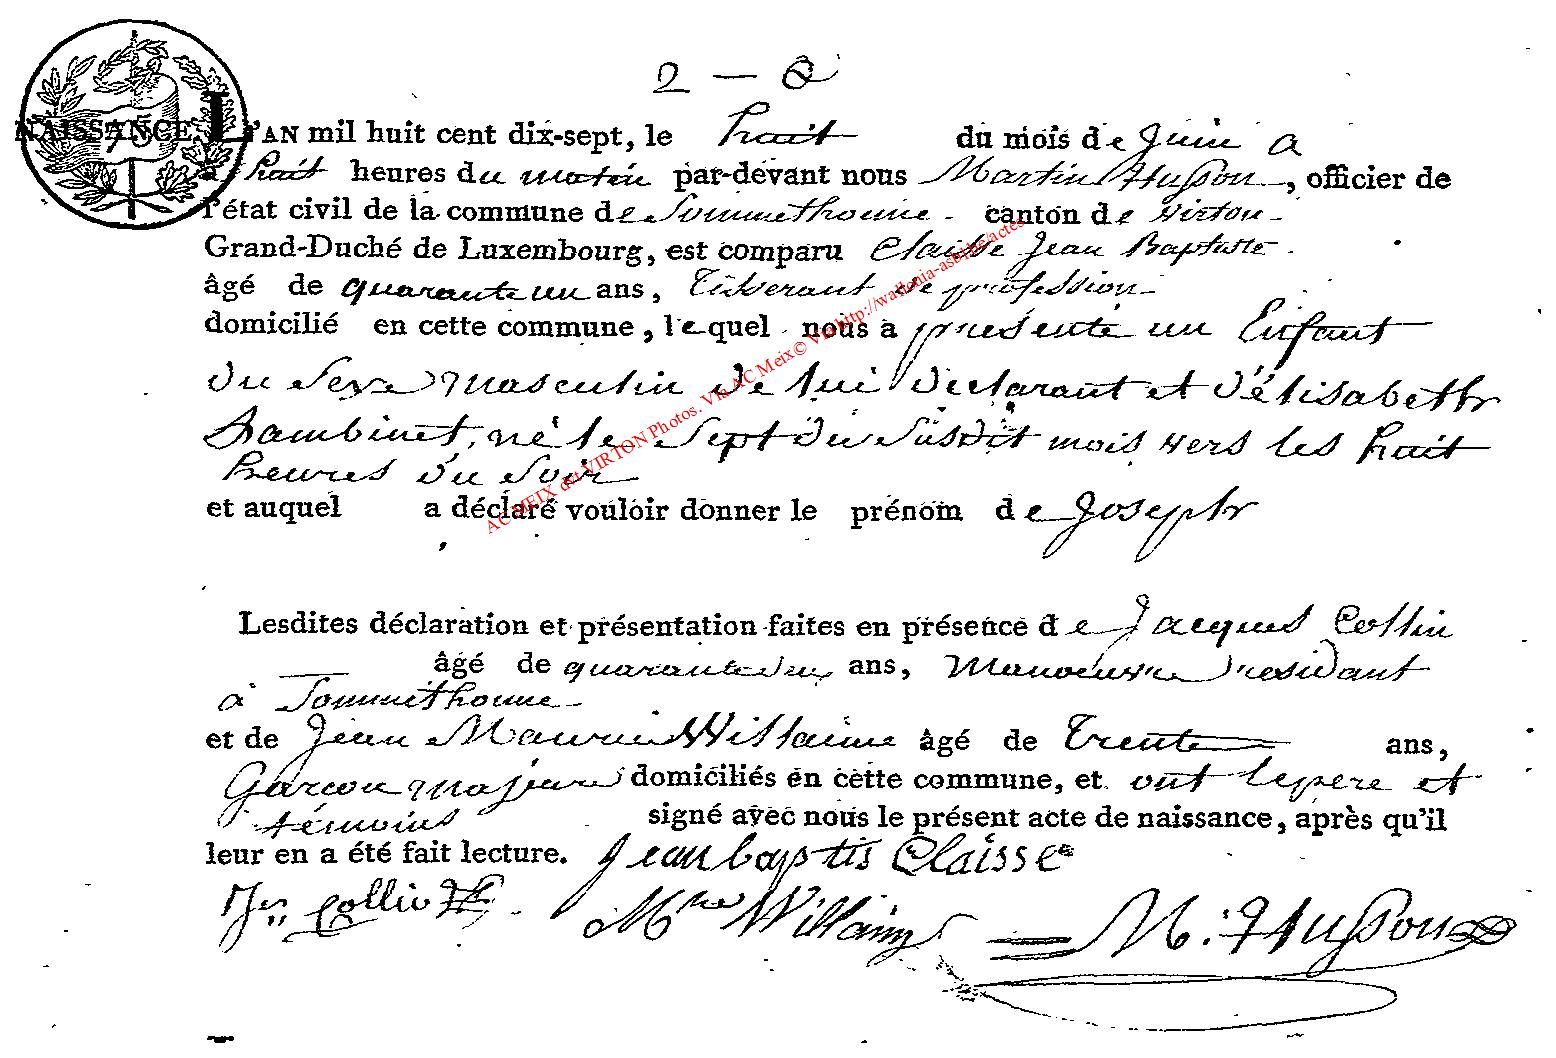 2 — 8
NAISSANCE. L'AN mil huit cent dix-sept, le huit du mois de juin a
à huit heures du matin par-devant nous Martin Husson, officier de
l'état civil de la commune de Sommethonne canton de Virton
Grand-Duché de Luxembourg, est comparu Claisse Jean Baptiste
âgé de quarante un ans, Tisserant de profession
domicilié en cette commune, lequel nous a présenté un Enfant
du sexe masculin de lui déclarant et d'élisabeth
Hambinet, né le sept du susdit mois vers les huit
heures du soir
et auquel a déclaré vouloir donner le prénom de Joseph
Lesdites déclaration et présentation faites en présence de Jacques Collin
âgé de quarante deux ans, Manoeuvre residant
à Sommethonne
et de Jean Maurice Willaime âgé de Trente ans,
Garcon majeur domiciliés en cette commune, et ont le pere et
témoins signé avec nous le présent acte de naissance, après qu'il
leur en a été fait lecture. jean baptis Claisse
Collin Mce Willaime M. Husson
AC MEIX dvt VIRTON Photos. Via AC Meix© Via http://wallonia-asbl.be/actes